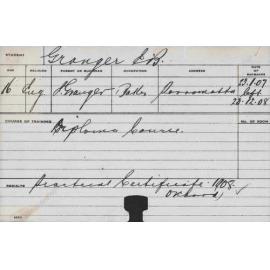 STUDENT
Granger E.B.
AGE RELIGION PARENT OR GUARDIAN OCCUPATION ADDRESS DATE OF ENTRANCE
16 Eng Granger Parramatta 23.1.07
left
23.12.08
COURSE OF TRAINING NO. OF ROOM
Diploma Course.
RESULTS Practical Certificate 1908